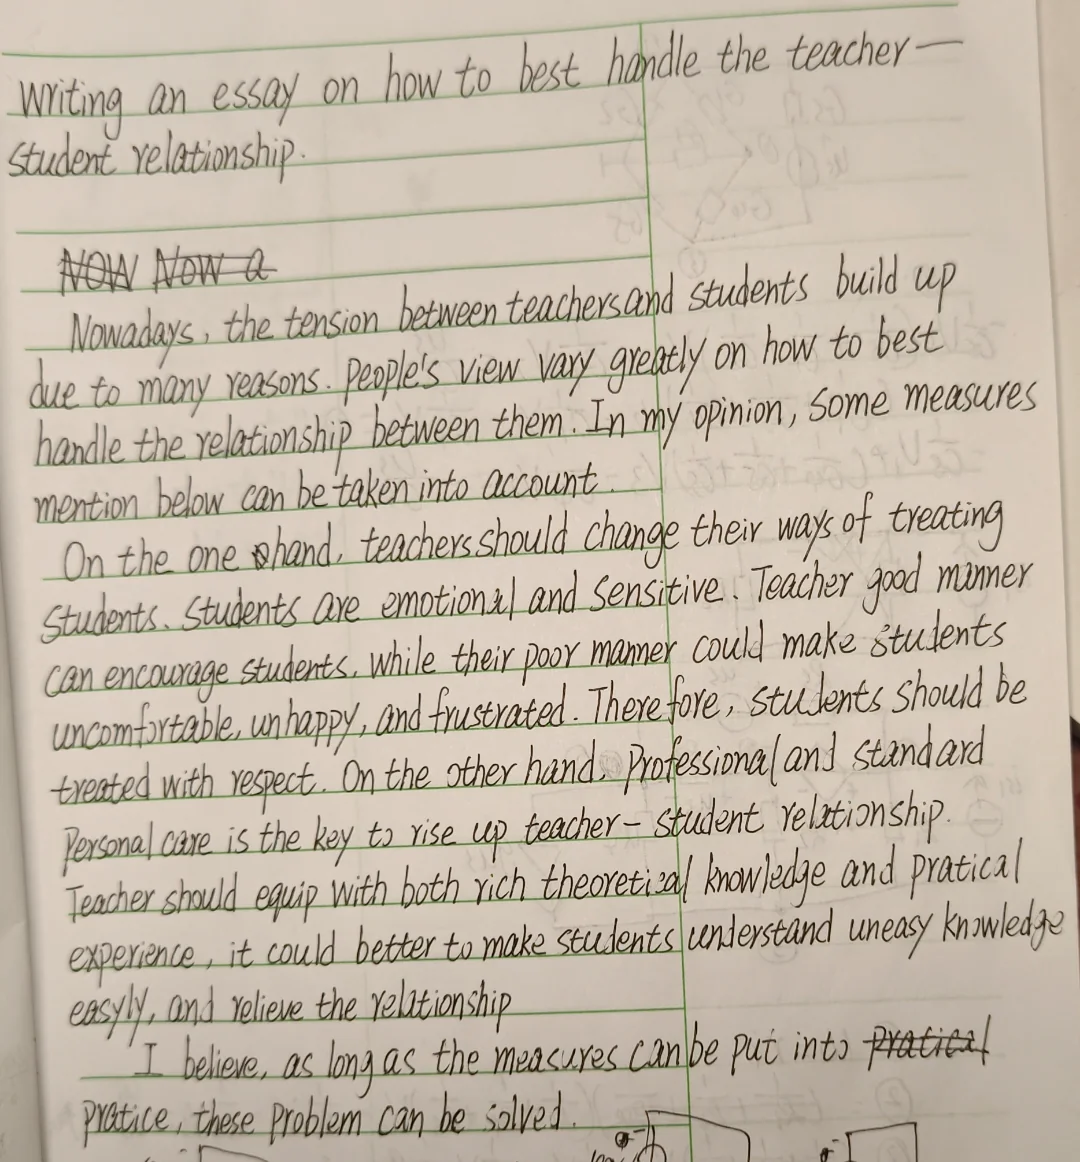 Writing an essay on how to best handle the teacher—
student relationship.
NOW Now a
Nowadays, the tension between teachers and students build up
due to many reasons. People's view vary greatly on how to best
handle the relationship between them. In my opinion, some measures
mention below can be taken into account.
On the one hand, teachers should change their ways of treating
students. Students are emotional and sensitive. Teacher good manner
can encourage students, while their poor manner could make students
uncomfortable, unhappy, and frustrated. Therefore, students should be
treated with respect. On the other hand, Professional and standard
Personal care is the key to rise up teacher-student relationship.
Teacher should equip with both rich theoretical knowledge and pratical
experience, it could better to make students understand uneasy knowledge
easyly, and relieve the relationship
I believe, as long as the measures can be put into pratical
pratice, these problem can be solved.